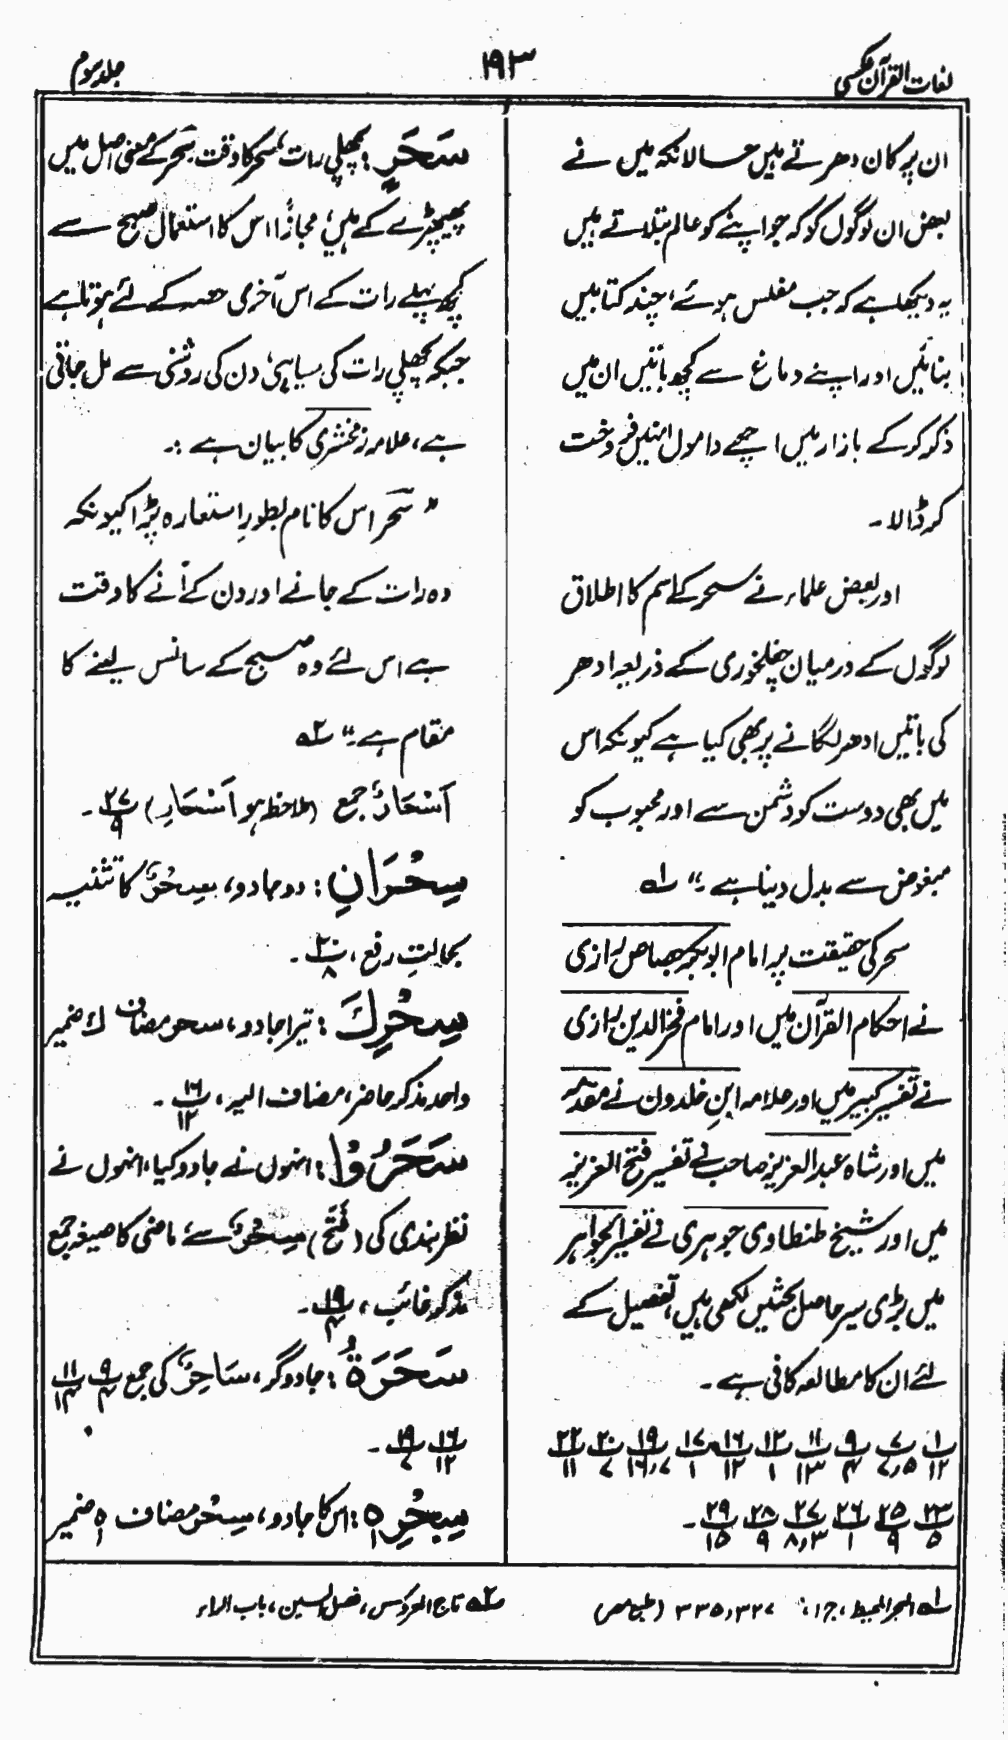 لغات القرآن عکسی
۱۹۳
جلد سوم
ان پر کان دھرتے ہیں حالانکہ میں نے
بعض ان لوگوں کو کہ جو اپنے کو عالم بتلاتے ہیں
یہ دیکھا ہے کہ جب مفلس ہوئے، چند کتابیں
بنائیں اور اپنے دماغ سے کچھ باتیں ان میں
ذکر کر کے بازار میں اچھے داموں انہیں فروخت
کر ڈالا۔
اور بعض علماء نے سحر کے اسم کا اطلاق
لوگوں کے درمیان چغلخوری کے ذریعہ ادھر
کی باتیں ادھر لگانے پر بھی کیا ہے کیونکہ اس
میں بھی دوست کو دشمن سے اور محبوب کو
مبغوض سے بدل دینا ہے۔" لہ
سحر کی حقیقت پر امام ابوبکر جصاص رازی
نے احکام القرآن میں اور امام فخرالدین رازی
نے تفسیر کبیر میں اور علامہ ابن خلدون نے مقدمہ
میں اور شاہ عبدالعزیز صاحب نے تفسیر فتح العزیز
میں اور شیخ طنطاوی جوہری نے تفسیر الجواہر
میں بڑی سیر حاصل بحثیں لکھی ہیں، تفصیل کے
لئے ان کا مطالعہ کافی ہے۔
۱/۱۲ ۷/۷،۵ ۹/۴ ۱۱/۱۳ ۱۲/۱ ۱۶/۱۲ ۱۷/۱ ۱۹/۱۶،۷ ۲۰/۷ ۲۲/۱۱
۲۳/۵ ۲۵/۹ ۲۶/۱ ۲۷/۸،۳ ۲۸/۹ ۲۹/۱۵۔
سَحَرٍ: پچھلی رات، سحر کا وقت سَحر کے معنی اصل میں
پھیپھڑے کے ہیں، مجازًا اس کا استعمال صبح سے
کچھ پہلے رات کے اس آخری حصہ کے لئے ہوتا ہے
جبکہ پچھلی رات کی سیاہی، دن کی روشنی سے مل جاتی
ہے، علامہ زمخشری کا بیان ہے :۔
"سَحَر اس کا نام بطورِ استعارہ پڑا کیونکہ
وہ رات کے جانے اور دن کے آنے کا وقت
ہے اس لئے وہ صبح کے سانس لینے کا
مقام ہے۔" ۲ہ
اَسْحَارٌ جمع (ملاحظہ ہو اَسْحَارِ) ۲۷/۹۔
سِحْرَانِ: دو جادو، سِحْرٌ کا تثنیہ
بحالتِ رفع، ۲۰/۸۔
سِحْرِكَ: تیرا جادو، سحر مضاف ك ضمیر
واحد مذکر حاضر، مضاف الیہ، ۱۶/۱۲۔
سَحَرُوْا: انہوں نے جادو کیا، انہوں نے
نظر بندی کی (فَتَحَ) سِحْرٌ سے ماضی کا صیغہ جمع
مذکر غائب، ۱۹/۴۔
سَحَرَةُ: جادوگر، سَاحِرٌ کی جمع ۹/۴ ۱۱/۱۴
۱۶/۱۲ ۱۹/۷۔
سِحْرِهٖ: اس کا جادو، سِحْر مضاف ہٖ ضمیر
لہ البحر المحیط، ج ۱، ۳۲۷، ۳۳۵ (طبع مصر)
۲ہ تاج العروس، فصل السین، باب الراء